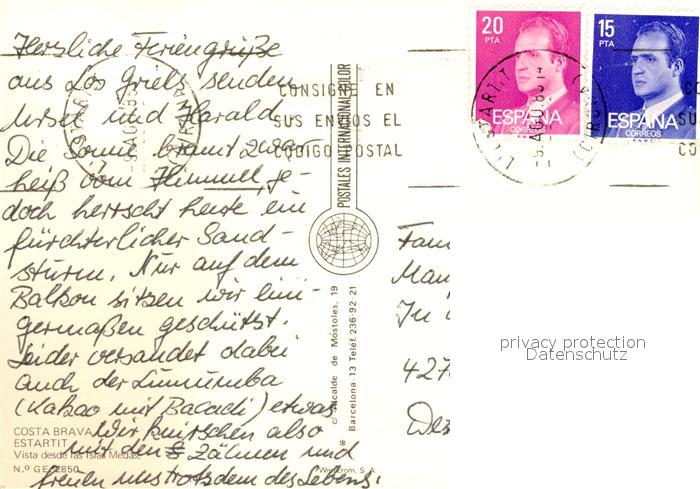 Herzliche Feriengrüße
aus Los Griels senden
Ursel und Harald
Die Sonne brennt zwar
heiß vom Himmel, je-
doch herrscht heute ein
fürchterlicher Sand-
sturm. Nur auf dem
Balkon sitzen wir eini-
germaßen geschützt.
Leider versandet dabei
auch der Lumumba
(Kakao mit Bacadi) etwas
Wir knirschen also
mit den Zähnen und
freuen uns trotzdem des Lebens.
COSTA BRAVA
ESTARTIT
Vista desde las Islas Medas.
N.º GE-2850
CONSIGNE EN
SUS ENVIOS EL
CODIGO POSTAL
POSTALES INTERNACIONAL COLOR
c/. Alcalde de Móstoles, 19
Barcelona-13 Telef. 236-92-21
20
PTA
ESPAÑA
CORREOS
15
PTA
ESPAÑA
CORREOS
Fam
In
427
privacy protection
Datenschutz